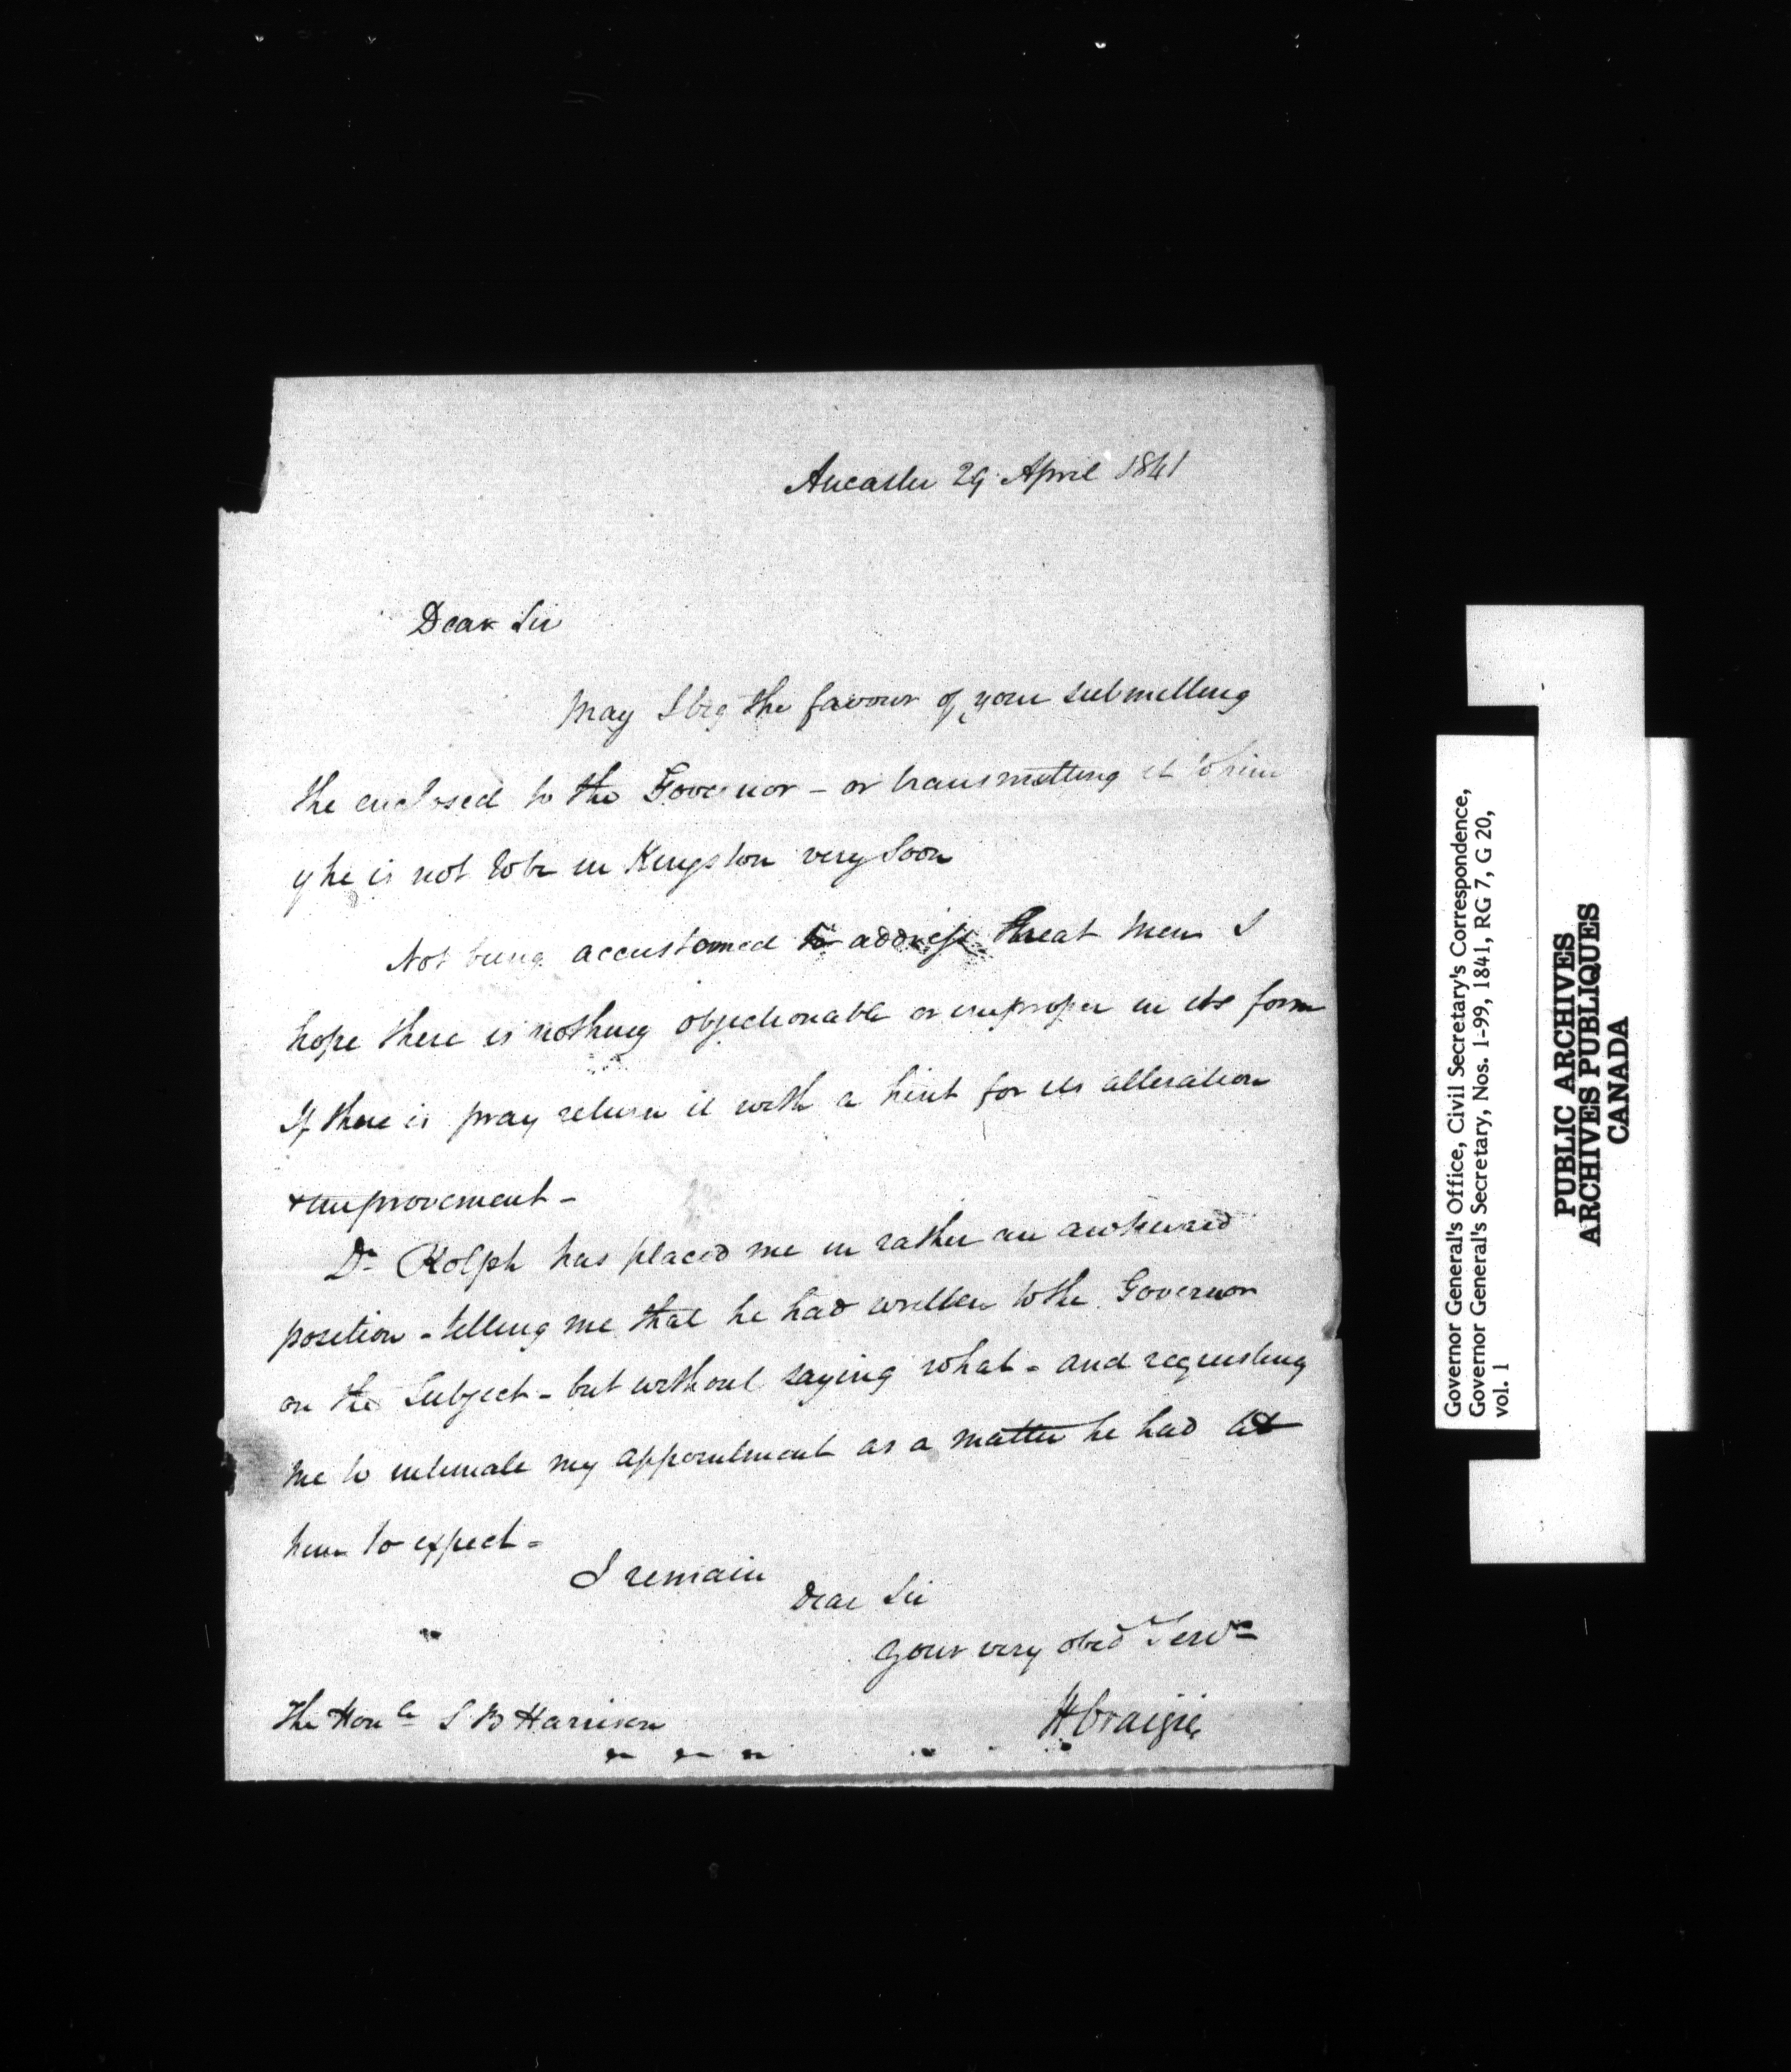 Ancaster 29 April 1841
Dear Sir
May I beg the favour of your submitting
the enclosed to the Governor - or transmitting it to him
if he is not to be in Kingston very soon
Not being accustomed to address Great Men I
hope there is nothing objectionable or improper in its form
If there is pray return it with a hint for its alteration
& improvement -
Dr Rolph has placed me in rather an awkward
position - telling me that he had written to the Governor
on the Subject - but without saying what - and requesting
me to intimate my appointment as a matter he had
to expect -
I remain
Dear Sir
Your very obed Servt
The Honble S B Harrison
W Craigie
Governor General's Office, Civil Secretary's Correspondence,
Governor General's Secretary, Nos. 1-99, 1841, RG 7, G 20,
vol. 1
PUBLIC ARCHIVES
ARCHIVES PUBLIQUES
CANADA